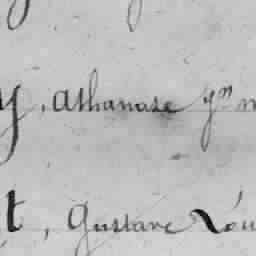 y, Athanase
t, Gustave Lou